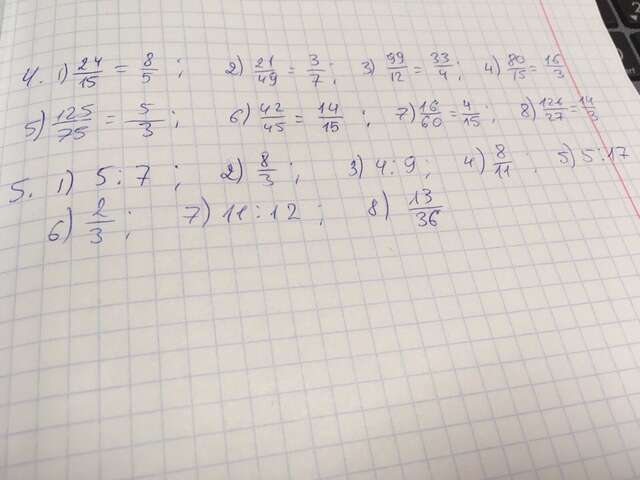 4. 1) 24/15 = 8/5 ; 2) 21/49 = 3/7 ; 3) 99/12 = 33/4 ; 4) 80/15 = 16/3
5) 125/75 = 5/3 ; 6) 42/45 = 14/15 ; 7) 16/60 = 4/15 ; 8) 126/27 = 14/3
5. 1) 5:7 ; 2) 8/3 ; 3) 4:9 ; 4) 8/11 ; 5) 5:17
6) 2/3 ; 7) 11:12 ; 8) 13/36